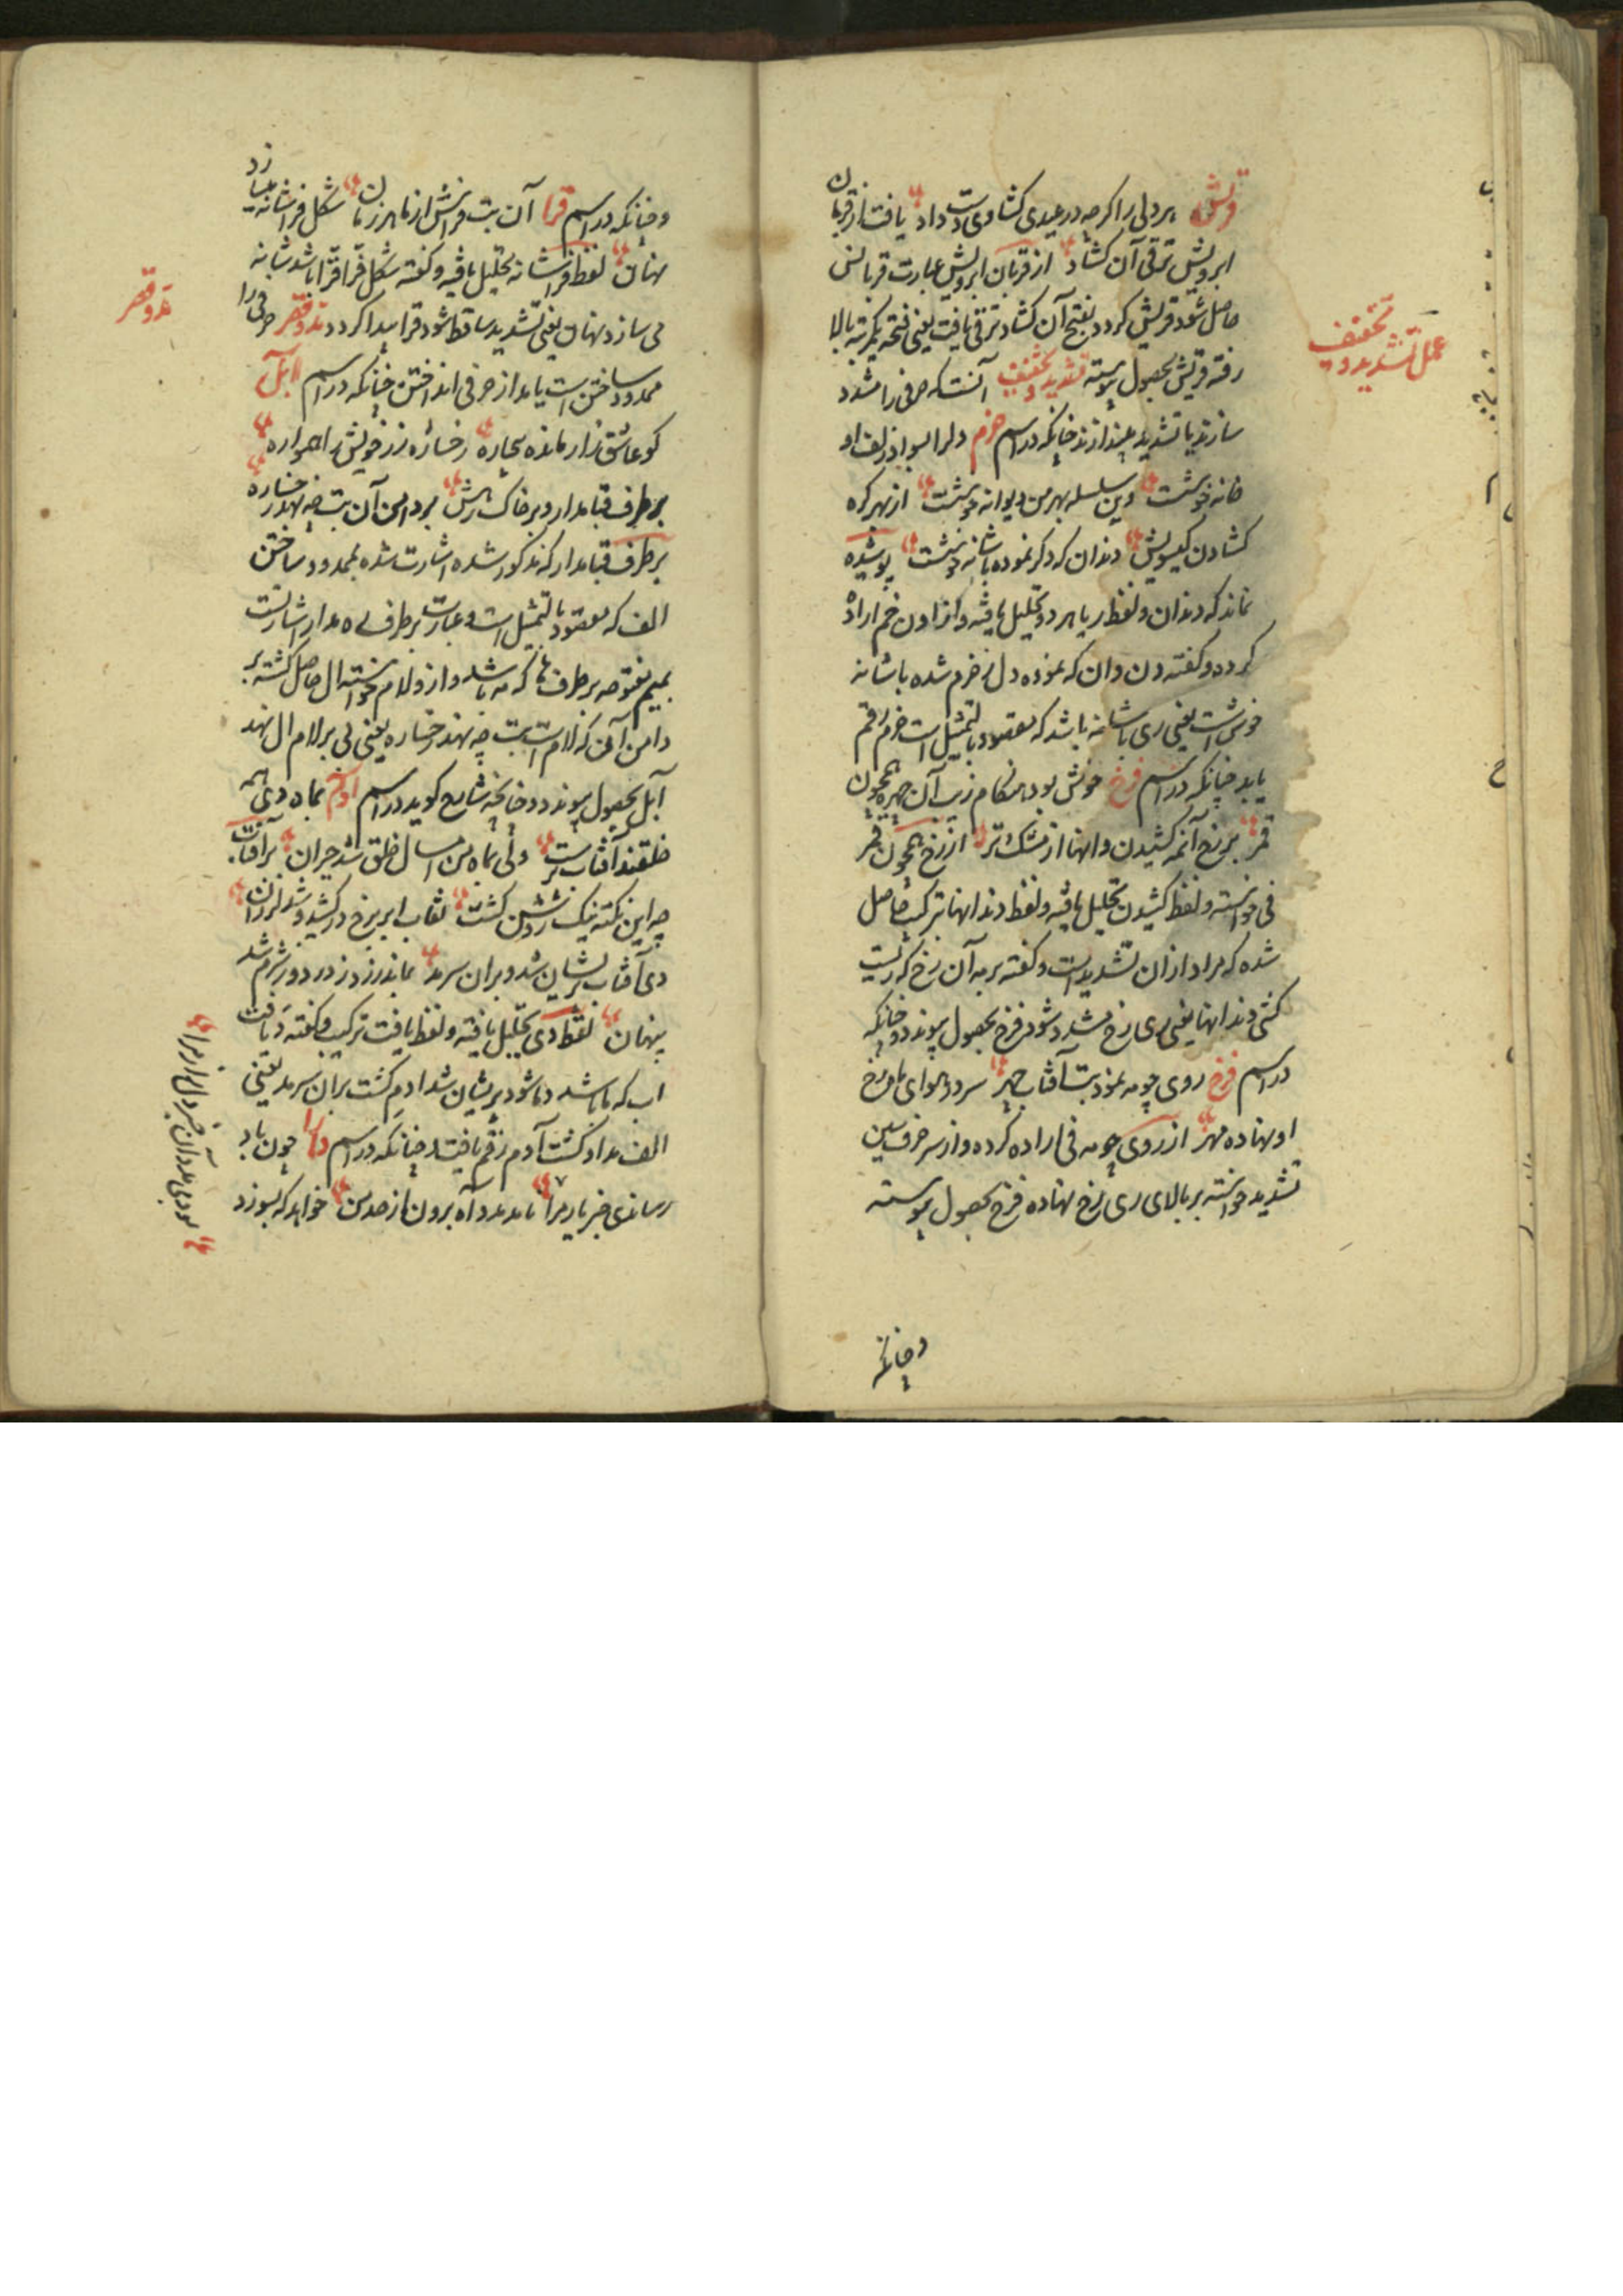 قریش هر دلی را اگرچه در عیدی کشاوی دست داد یافت از قربان
ابرویش ترقی آن کشاد از قربان ابرویش عبارت قربانش
حاصل شود قریش کردد بفتح آن کشاد ترقی یافت یعنی فتحه یکمرتبه بالا
رفته قریش بحصول پیوسته تشدید و تخفیف آنست که حرفی را مشدد
سازند یا تشدید بیندازند چنانکه در اسم خرم دلرا بسواد زلف او
خانه خوشست وین سلسله بهر من دیوانه خوشست از بهر کره
کشادن کیسویش دندان که ذکر نموده باشانه خوشست پوشیده
نماند که دندان و لفظ ریا هر دو تحلیل یافته و از اون خم اراده
کرده و کفته دن وان که نموده دل خرم شده باشانه
خوش است یعنی ری باشانه باشد که مقصود بالتمثیل است خرم رقم
یابد چنانکه در اسم فرخ خوش بود هنکام زیب آن چهره همچون
قمر بر رخ آنمه کشیدن دانها از مشک تر از رخ همچون قمر
فی خواسته و لفظ کشیدن تحلیل یافته و لفظ دندانها ترکیب حاصل
شده که مراد ازان تشدید است و کفته بر مه آن رخ که ریست
کشی دندانها یعنی ری رخ مشدد شود فرخ بحصول پیوندد و چنانکه
در اسم فرخ روی چو مه نمود بت آفتاب چهر سر در هوای ماه رخ
او نهاده مهر از روی چو مه فی اراده کرده و از سر حرف سین
تشدید خواسته بر بالای ری رخ نهاده فرخ بحصول پیوسته
وچنانکه
عمل تشدید و تخفیف
وچنانکه در اسم قرا آن بت فراش از ماهر زمان شکل فراشانه میسازد
نهان لفظ فراشانه تحلیل یافته و کفته شکل فرا قرا باشد شانه
می سازد نهان یعنی تشدید ساقط شود قرا پیدا کردد مد و قصر حرفی را
ممدود ساختن است یا مد از حرفی انداختن چنانکه در اسم آبل
کو عاشق زار مانده بیچاره رخساره زرد خویش را همواره
بر طرف قبا مدار و بر خاک رهش بر دامن آن بت چه نهد رخساره
بر طرف قبا مدار که مذکور شده اشارت شده بممدود ساختن
الف که مقصود بالتمثیل است و عبارت بر طرف ماه مدار اشارتست
بمیم مفتوحه بر طرف ها که مه باشد و ازو لام خواسته ال حاصل کشته بر
دامن آن که لام است بت چه نهد رخساره یعنی بی بر لام ال نهد
آبل بحصول پیوندد و چنانچه شایع کوید در اسم آدم بماه دی همه
خلقند آفتاب پرست ولی بماه من امسال خلق شد حیران بر آفتاب
چه این نکته نیک روشن کشت نقاب ابر بر رخ در کشید و شد لرزان
دی آفتاب پریشان شد و بران سر مد بماند زرد ز درد و ز شرم شد
پنهان لفظ دی تحلیل یافته و لفظ یافت ترکیب و کفته دیافت
اب که ما باشد دما شود پریشان شد ادم کشت بران سر مد یعنی
الف مد ادم کشت آدم رقم یافت چنانکه در اسم دارا چون باد
رساندی خبر یار مرا باد مدد آه برون از صد من خواهد که بسوزد
مد و قصر